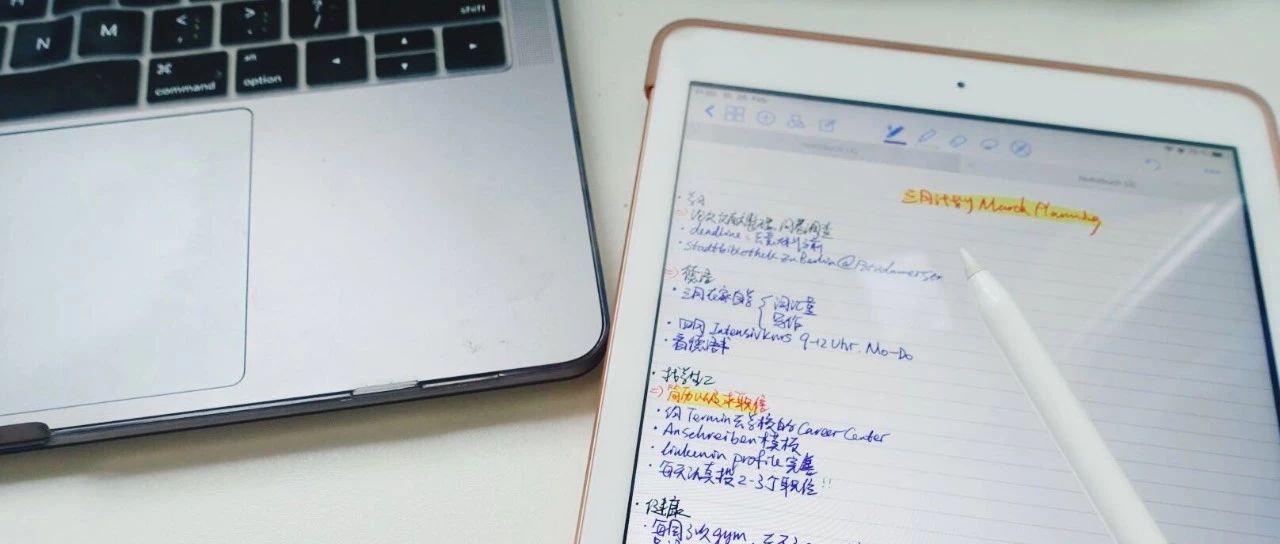 shift
N
M
<
,
>
.
?
/
⌘
command
alt
option
三月计划 March Planning
· 学习
=> 论文文献整理、问卷调查
· deadline: 去
· Stadtbibliothek zu Berlin @ Potsdamer Str
=> 德语
· 三月在家自学 { 词汇量
写作
· 四月 Intensivkurs 9-12 Uhr, Mo-Do
· 看德语书
· 找学生工
=> 简历以及求职信
· 约 Termin 去学校的 Career Center
· Anschreiben 模板
· linkedin profile 完善
· 每天认真投 2-3个职位 !!
· 健康
· 每周3次 gym,